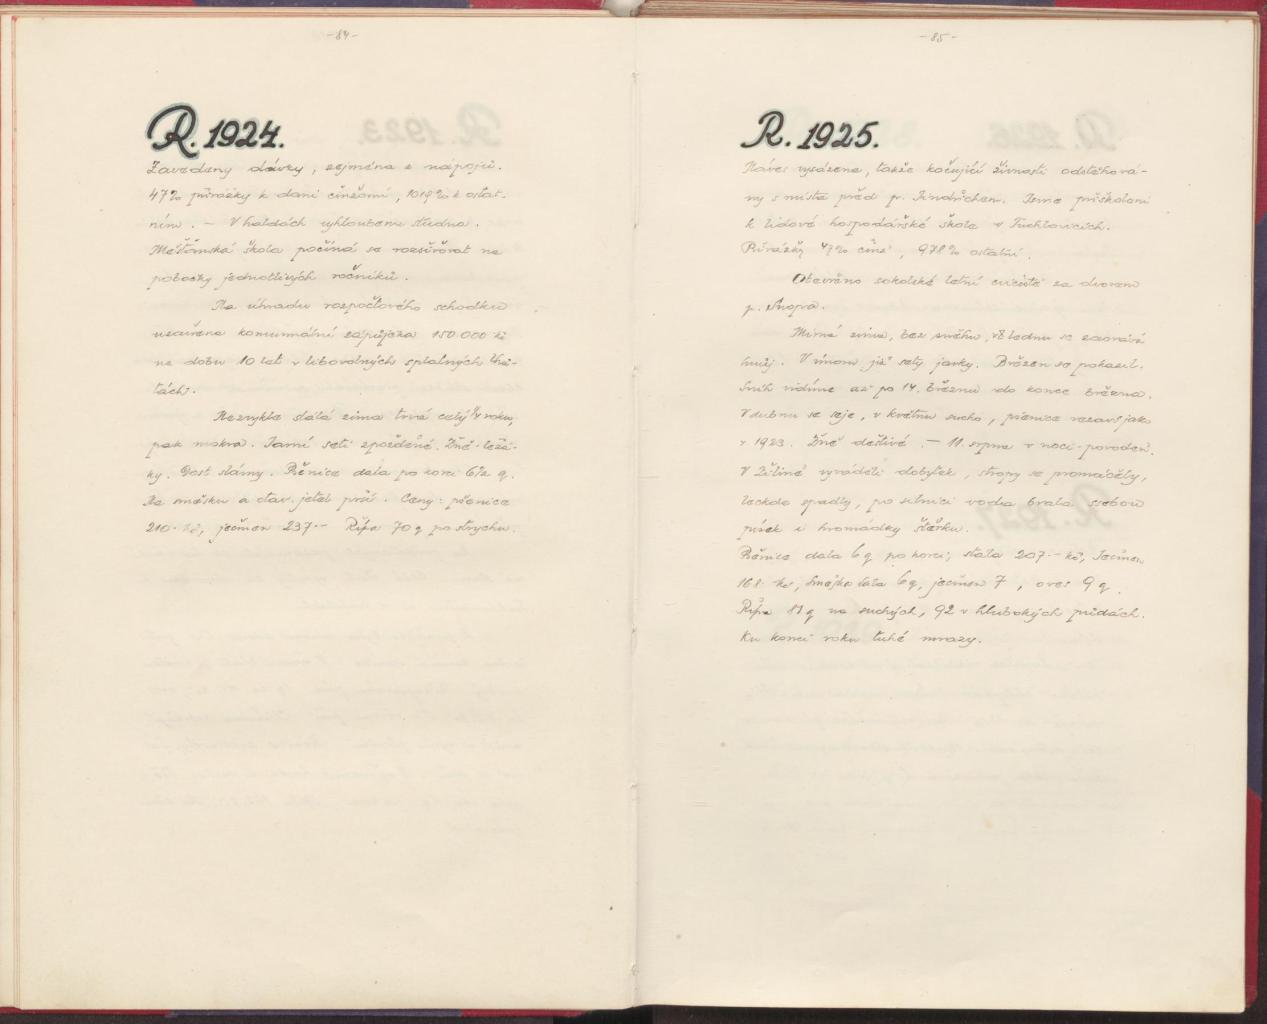 -84-
R. 1924.
Zavedeny dávky, zejména z nápojů.
47% přirážky k dani činžovní, 1018% k ostat-
ním. - V haldách vyhloubena studna.
Měšťanská škola počíná se rozšiřovat na
pobočky jednotlivých ročníků.
Na úhradu rozpočtového schodku
uzavřena komunální zápůjčka 150.000 Kč
na dobu 10 let v libovolných splatných lhů-
tách.
Nezvykle stálá zima trvá celý ¼ roku,
pak mokra. Jarní setí zpožděné. Žně - ležá-
ky. Dost slámy. Pšenice dala po korci 6½ q.
Na směsku a otav. jetel prší. Ceny: pšenice
210.- Kč, ječmen 237.- Řípa 70 q po strychu.
-85-
R. 1925.
Náves vysázena, takže kočující živnosti odstěhová-
ny s místa před p. Jindřichem. Jsme přiškoleni
k lidové hospodářské škole v Tuchlovicích.
Přirážky 47% činž, 978% ostatní.
Otevřeno sokolské letní cvičiště za dvorem
p. Šnopa.
Mírná zima, bez sněhu, v lednu se zaorává
hnůj. V únoru již sety jarky. Březen se pokazil.
Sníh vidíme až po 14. březnu do konce března.
V dubnu se seje, v květnu sucho, pšenice rezaví jako
v 1923. Žně deštivé. - 11. srpna v noci - povodeň.
V Žilině vyváděli dobytek, stropy se promáčely,
leckde spadly, po silnici voda brala sebou
písek i hromádky štěrku.
Pšenice dala 6 q po korci, stála 207.- Kč, Ječmen
168.- Kč, Směska dala 6 q, ječmen 7, oves 9 q.
Řípa 81 q na suchých, 92 v hlubokých půdách.
Ku konci roku tuhé mrazy.